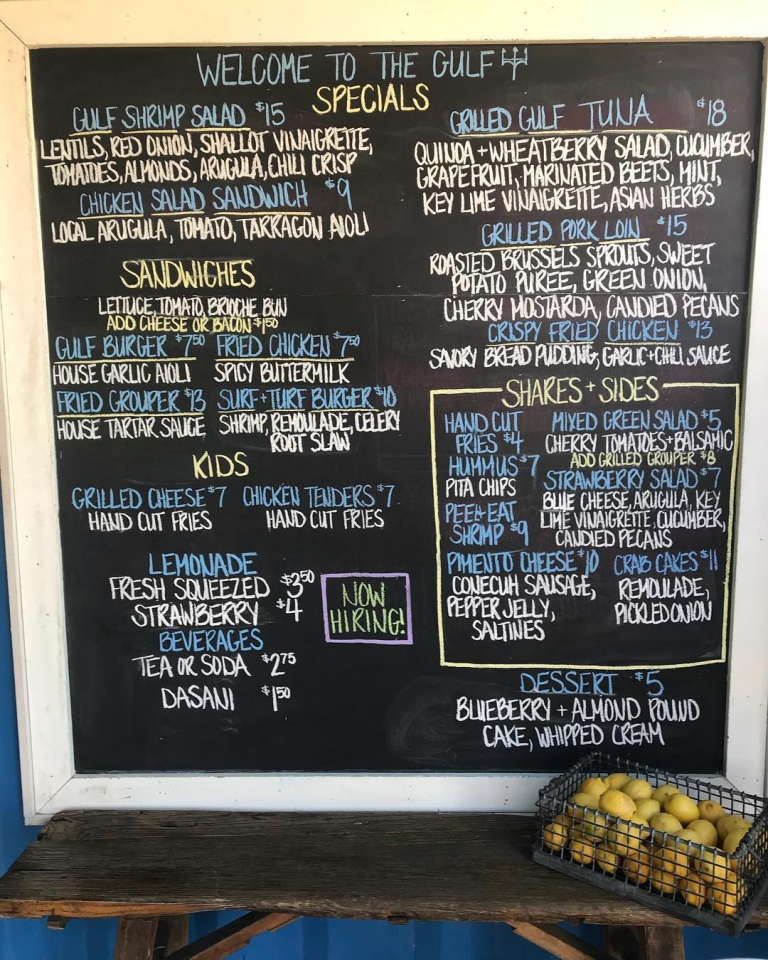 WELCOME TO THE GULF
SPECIALS
GULF SHRIMP SALAD $15
LENTILS, RED ONION, SHALLOT VINAIGRETTE,
TOMATOES, ALMONDS, ARUGULA, CHILI CRISP
CHICKEN SALAD SANDWICH $9
LOCAL ARUGULA, TOMATO, TARRAGON AIOLI
SANDWICHES
LETTUCE, TOMATO, BRIOCHE BUN
ADD CHEESE OR BACON $1.50
GULF BURGER $7.50 FRIED CHICKEN $7.50
HOUSE GARLIC AIOLI SPICY BUTTERMILK
FRIED GROUPER $13 SURF+TURF BURGER $10
HOUSE TARTAR SAUCE SHRIMP, REMOULADE, CELERY
ROOT SLAW
KIDS
GRILLED CHEESE $7 CHICKEN TENDERS $7
HAND CUT FRIES HAND CUT FRIES
LEMONADE
FRESH SQUEEZED $3.50
STRAWBERRY $4
BEVERAGES
TEA OR SODA $2.75
DASANI $1.50
NOW
HIRING!
GRILLED GULF TUNA $18
QUINOA + WHEATBERRY SALAD, CUCUMBER,
GRAPEFRUIT, MARINATED BEETS, MINT,
KEY LIME VINAIGRETTE, ASIAN HERBS
GRILLED PORK LOIN $15
ROASTED BRUSSELS SPROUTS, SWEET
POTATO PUREE, GREEN ONION,
CHERRY MOSTARDA, CANDIED PECANS
CRISPY FRIED CHICKEN $13
SAVORY BREAD PUDDING, GARLIC+CHILI SAUCE
SHARES + SIDES
HAND CUT
FRIES $4
HUMMUS $7
PITA CHIPS
PEEL+EAT
SHRIMP $9
MIXED GREEN SALAD $5
CHERRY TOMATOES+BALSAMIC
ADD GRILLED GROUPER $8
STRAWBERRY SALAD $7
BLUE CHEESE, ARUGULA, KEY
LIME VINAIGRETTE, CUCUMBER,
CANDIED PECANS
PIMENTO CHEESE $10
CONECUH SAUSAGE,
PEPPER JELLY,
SALTINES
CRAB CAKES $11
REMOULADE,
PICKLED ONION
DESSERT $5
BLUEBERRY + ALMOND POUND
CAKE, WHIPPED CREAM